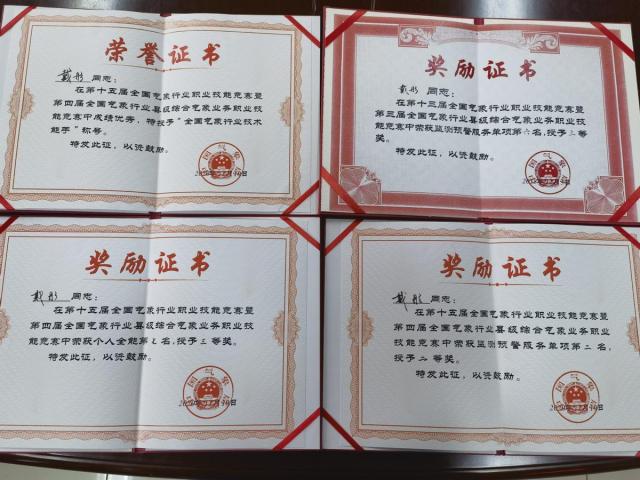 荣誉证书
戴彤 同志：
在第十五届全国气象行业职业技能竞赛暨
第四届全国气象行业县级综合气象业务职业技
能竞赛中成绩优秀，特授予“全国气象行业技术
能手”称号。
特发此证，以资鼓励。
奖励证书
戴彤 同志：
在第十三届全国气象行业职业技能竞赛暨
第三届全国气象行业县级综合气象业务职业技
能竞赛中荣获监测预警服务单项第六名，授予三等
奖。
特发此证，以资鼓励。
奖励证书
戴彤 同志：
在第十五届全国气象行业职业技能竞赛暨
第四届全国气象行业县级综合气象业务职业技
能竞赛中荣获个人全能第七名，授予三等奖。
特发此证，以资鼓励。
奖励证书
戴彤 同志：
在第十五届全国气象行业职业技能竞赛暨
第四届全国气象行业县级综合气象业务职业
技能竞赛中荣获监测预警服务单项第二名，
授予二等奖。
特发此证，以资鼓励。